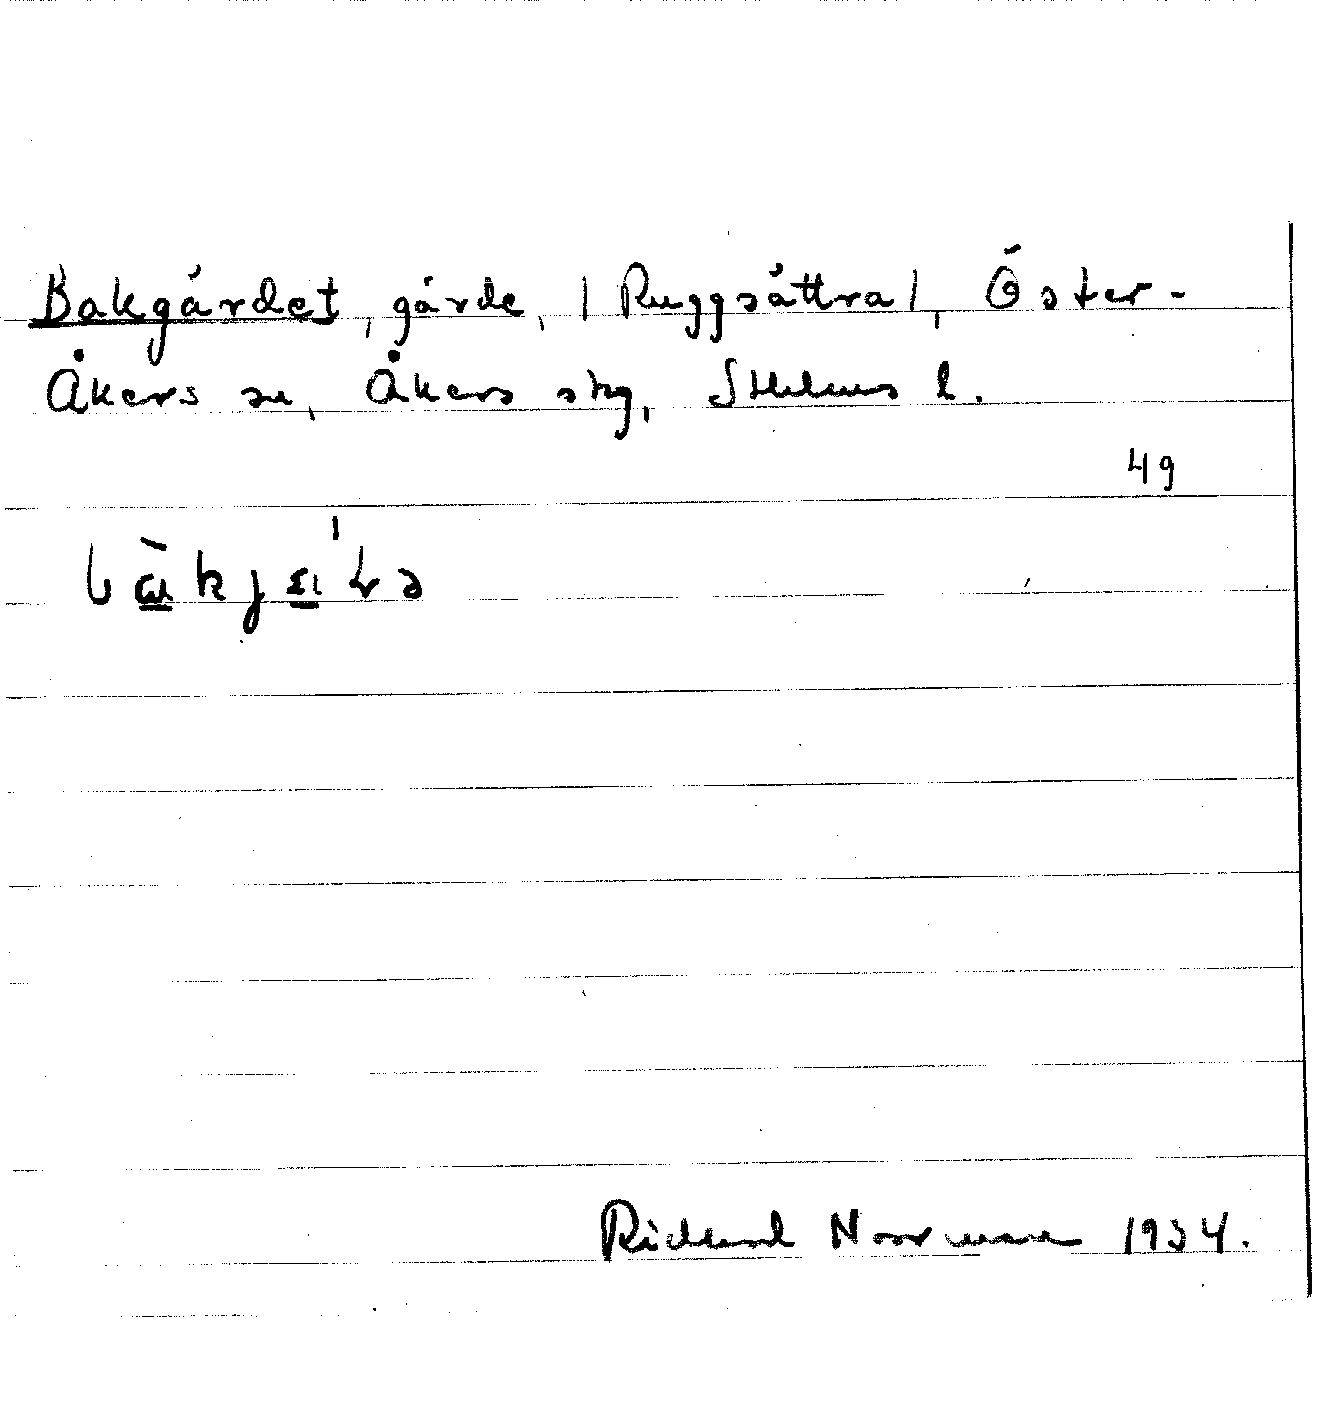 Bakgärdet, gärde, | Ruggsättra |, Öster-
Åkers sn, Åkers skg, Sthlms l.
49
Richard Noorman 1934.